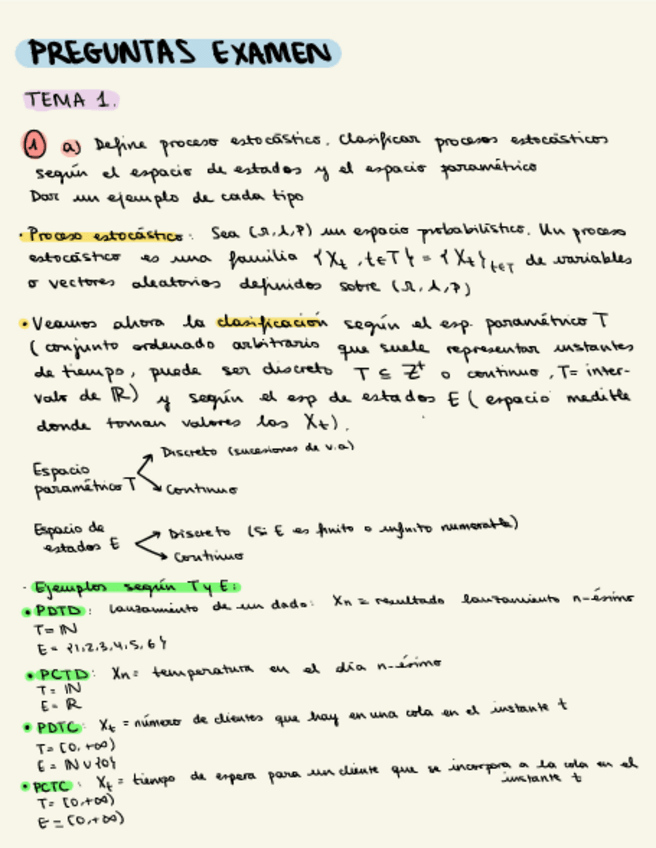 PREGUNTAS EXAMEN
TEMA 1.
1 a) Define proceso estocástico. Clasificar procesos estocásticos
según el espacio de estados y el espacio paramétrico
Dar un ejemplo de cada tipo
• Proceso estocástico: Sea (Ω, A, P) un espacio probabilístico. Un proceso
estocástico es una familia {Xt, t∈T} = {Xt}t∈T de variables
o vectores aleatorios definidos sobre (Ω, A, P)
• Veamos ahora la clasificación según el esp. paramétrico T
(conjunto ordenado arbitrario que suele representar instantes
de tiempo, puede ser discreto T ⊆ Z⁺ o continuo, T= inter-
valo de ℝ) y según el esp de estados E (espacio medible
donde toman valores las Xt).
Espacio paramétrico T
Discreto (sucesiones de v.a)
Continuo
Espacio de estados E
Discreto (si E es finito o infinito numerable)
Continuo
· Ejemplos según T y E:
• PDTD: Lanzamiento de un dado: Xn = resultado lanzamiento n-ésimo
T= ℕ
E = {1,2,3,4,5,6}
• PCTD: Xn = temperatura en el día n-ésimo
T= ℕ
E= ℝ
• PDTC: Xt = número de clientes que hay en una cola en el instante t
T= [0,+∞)
E = ℕ ∪ {0}
• PCTC: Xt = tiempo de espera para un cliente que se incorpora a la cola en el
instante t
T= [0,+∞)
E = [0,+∞)